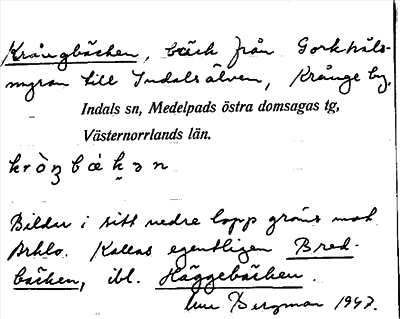 Krångbäcken, bäck från Gorkhåls-
myran till Indalsälven, Krånge by,
Indals sn, Medelpads östra domsagas tg,
Västernorrlands län.
Bildar i sitt nedre lopp gräns mot
Kallas egentligen Bred-
bäcken, ibl. Häggebäcken.
Bergman 1947.